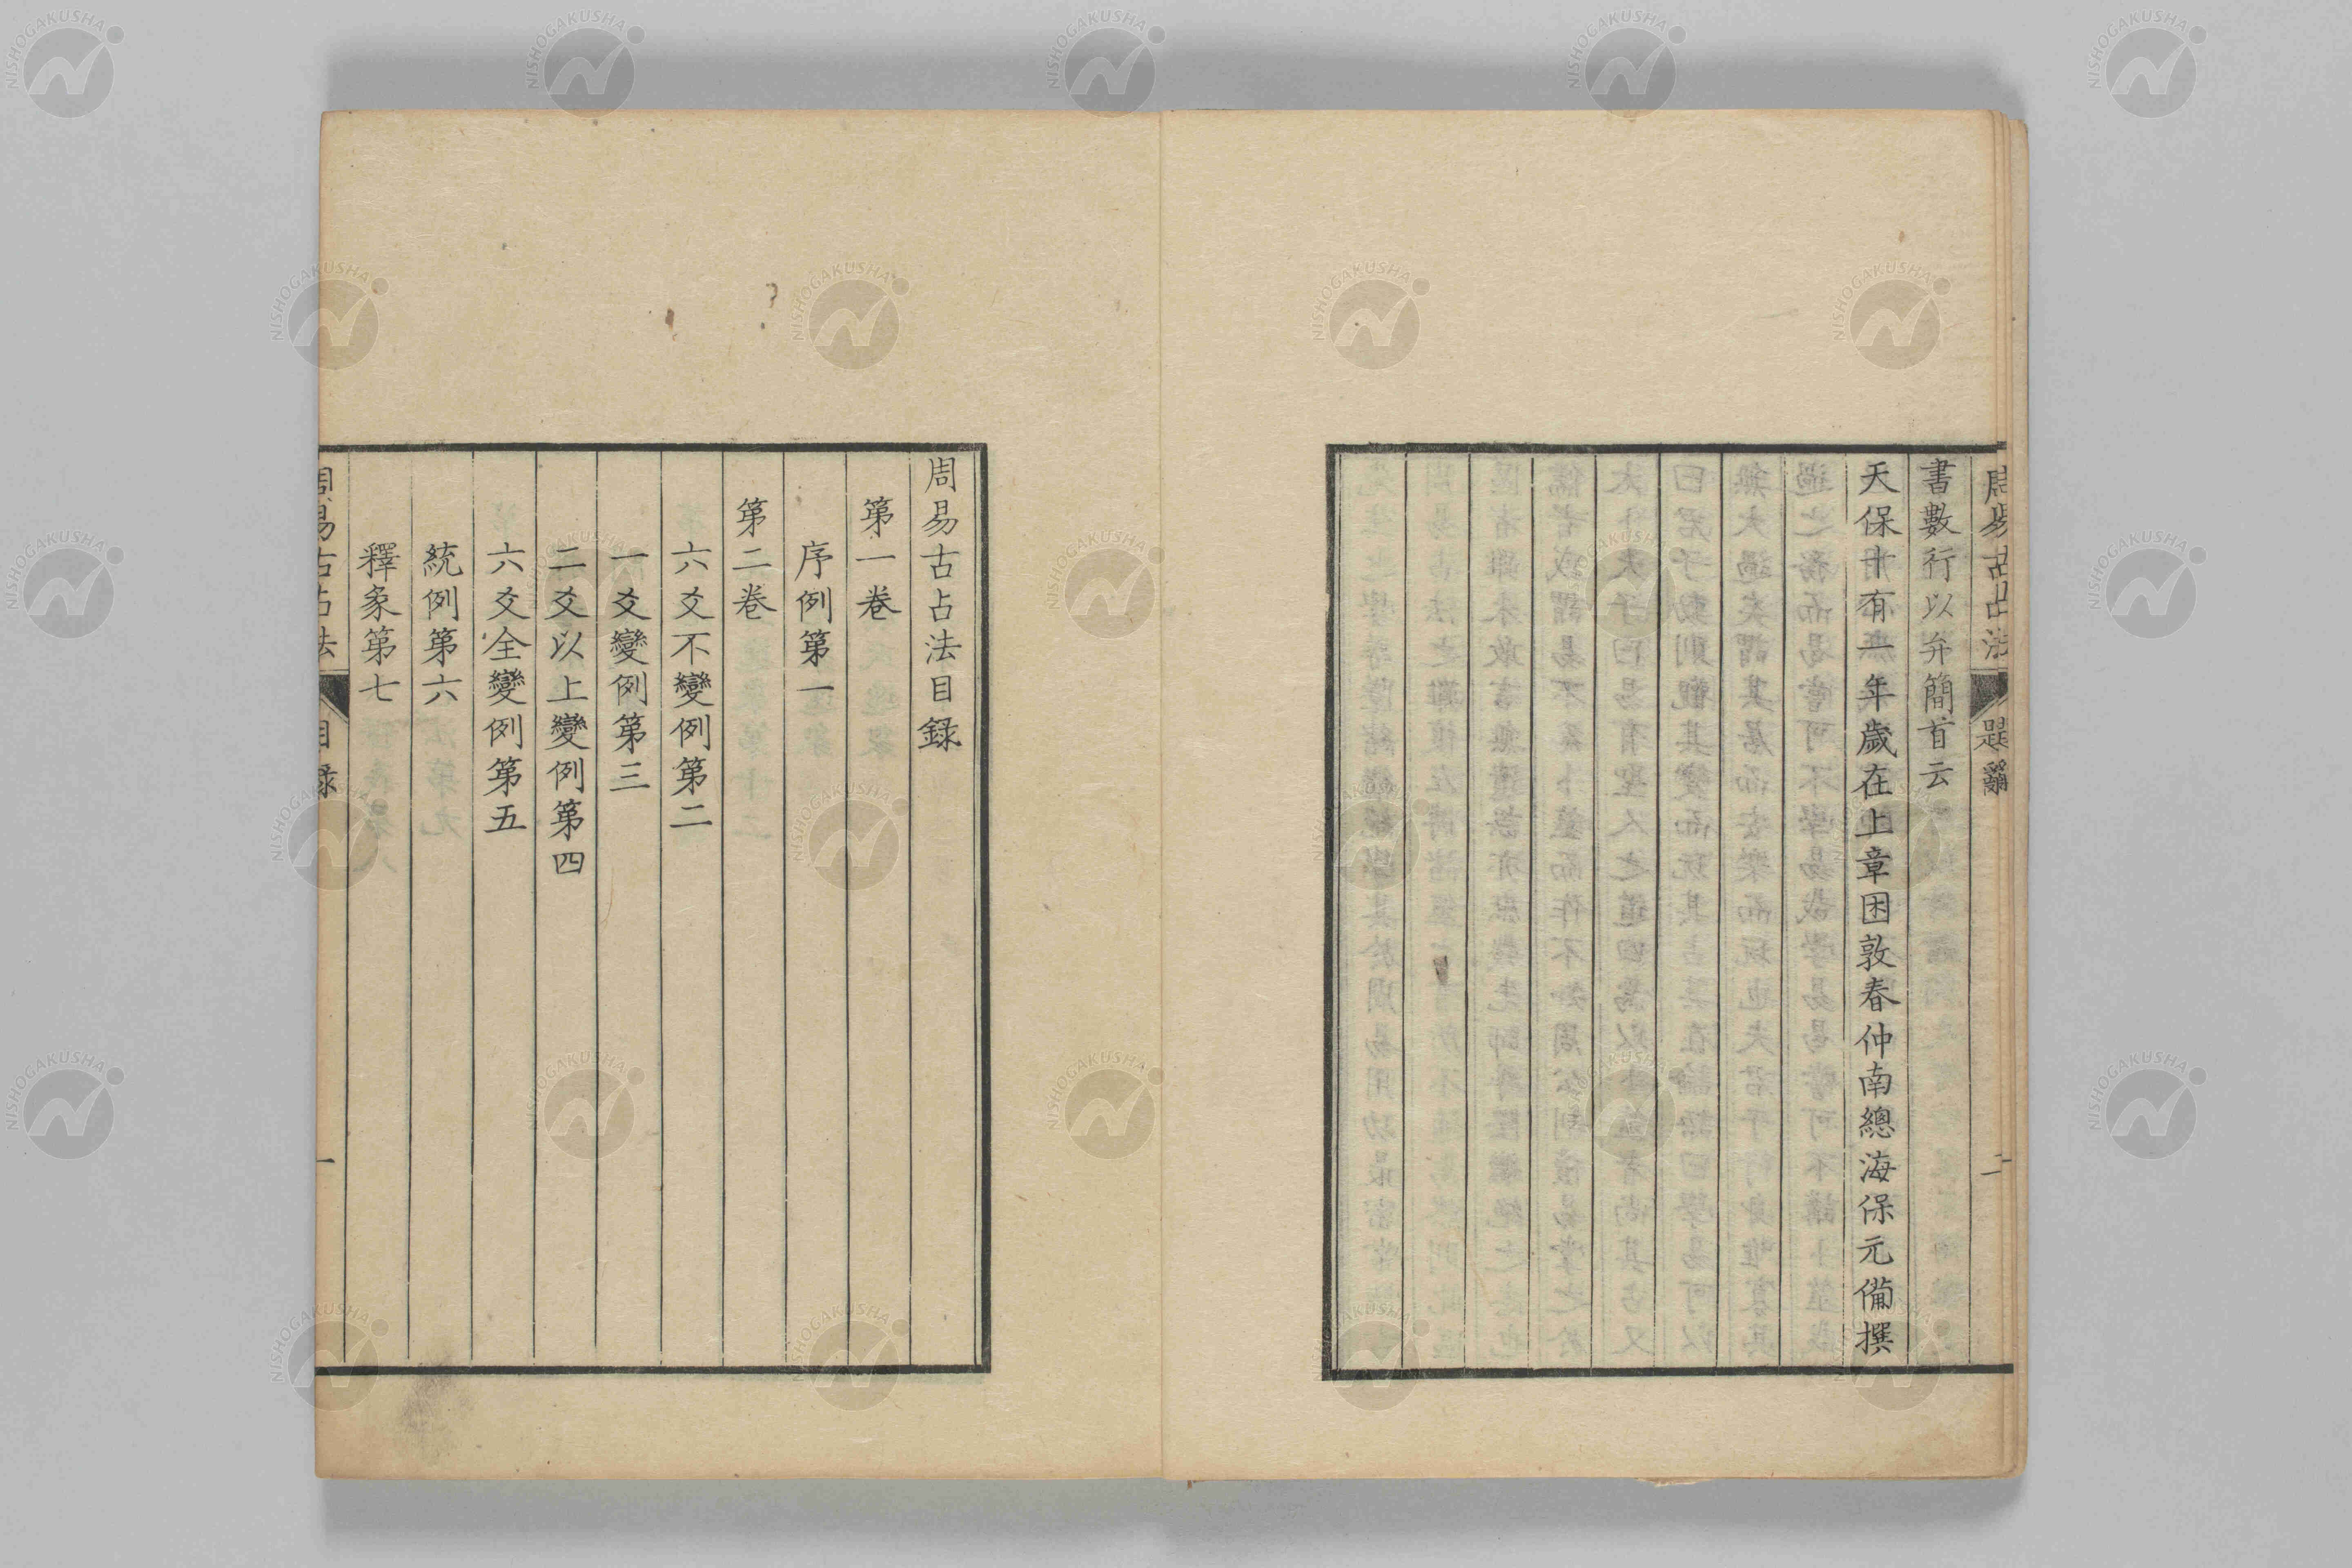 周易古占法 題辭 二
書數行以弁簡首云
天保十有一年歲在上章困敦春仲南總海保元備撰
周易古占法目録
第一卷
序例第一
第二卷
六爻不變例第二
一爻變例第三
二爻以上變例第四
六爻全變例第五
統例第六
釋象第七
周易古占法 目録 一
NISHOGAKUSHA